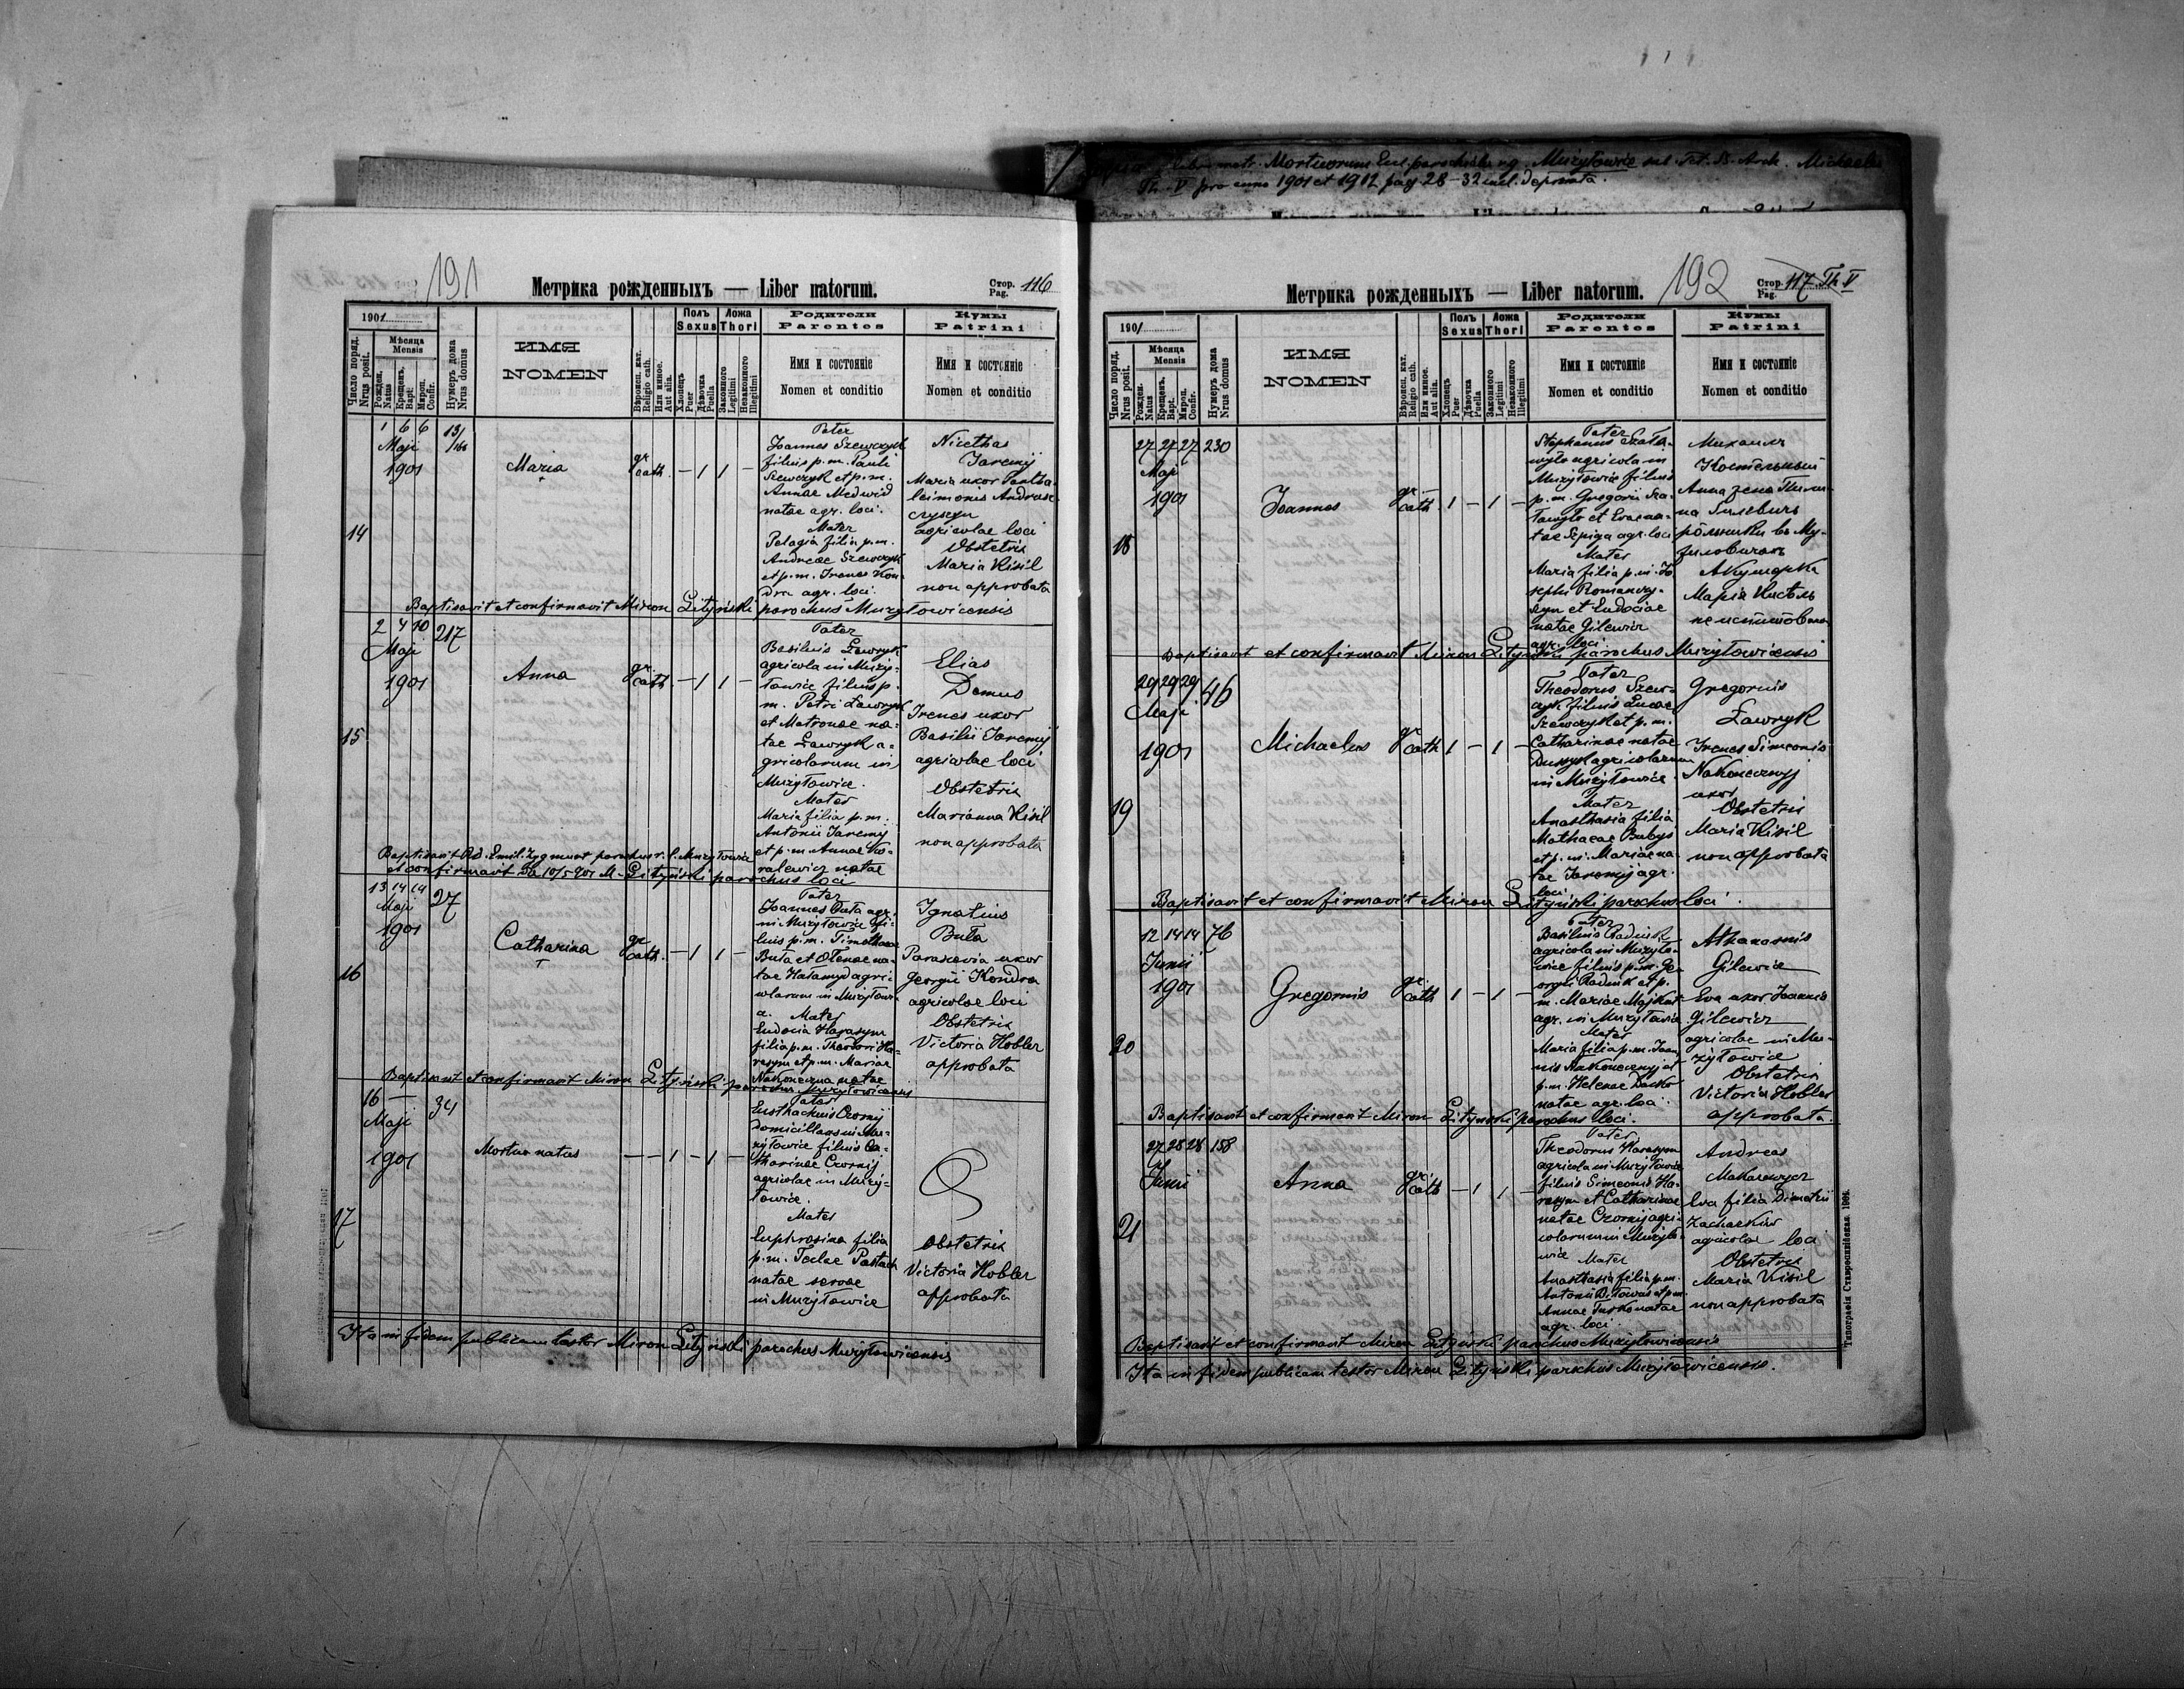 191
Метрика рожденныхъ — Liber natorum.
Стор. Pag. 116
1901
Число поряд. Nrus posit.
Мѣсяца Mensis
Рожден. Natus
Крещенъ. Bapt.
Мѵроп. Confir.
Нумеръ дома Nrus domus
ИМЯ
NOMEN
Вѣроисп. кат. Religio cath.
Или инное. Aut alia.
Полъ Sexus
Хлопецъ Puer
Дѣвочка Puella
Ложа Thori
Законного Legitimi
Незаконного Illegitimi
Родители
Parentes
Имя и состояніе
Nomen et conditio
Кумы
Patrini
Имя и состояніе
Nomen et conditio
14
1 6 6
Maji
1901
13/166
Maria
gr cath.
— 1 1 —
Pater
Joannes Szewczyk
filius p. m. Pauli
Szewczyk et p. m.
Annae Medwid
natae agr. loci.
Mater
Pelagia filia p. m.
Andreae Szewczyk
et p. m. Irenes Kon-
dra agr. loci.
Nicethas
Jaremij
Maria uxor Panta-
leimonis
agricolae loci
Obstetrix
Maria Kisil
non approbata
Baptisavit et confirmavit Miron Lityński parochus Mużyłowicensis
15
2 4 10
Maji
1901
217
Anna
gr cath.
— 1 1 —
Pater
Basilius Ławryk
agricola in Muży-
łowice filius p.
m. Petri Ławryk
et Matronae na-
tae Ławryk a-
gricolarum in
Mużyłowice.
Mater
Maria filia p. m.
Antonii Jaremij
et p. m. Annae Ko-
walewicz natae
Elias
Demus
Irenes uxor
Basilii Jaremij
agricolae loci
Obstetrix
Marianna Kisil
non approbata
Baptisavit Rd. Emil. Zygmunt parochus r. l. Mużyłowice
et confirmavit Da 10/5 901 M. Lityński parochus loci
16
13 14 14
Maji
1901
27
Catharina
gr cath.
— 1 1 —
Pater
Joannes Buła agr.
in Mużyłowice fi-
lius p. m. Timothaeae
Buła et Olenae na-
tae Hałamyd agri-
colarum in Mużyłowi-
a. Mater
Eudocia Harasym
filia p. m. Theodori Ha-
rasym et p. m. Mariae
Nakoneczna natae
Ignatius
Buła
Parascevia uxor
Georgii Kondra
agricolae loci
Obstetrix
Victoria Hobler
approbata
Baptisavit et confirmavit Miron Lityński parochus Mużyłowicensis
17
16 —
Maji
1901
34
Mortuo natus
— — 1 — 1 —
Pater
Eusthachius Czornij
Domicillans in Mu-
żyłowice filius Ca-
tharinae Czornij
agricolae in Muży-
łowice.
Mater
Euphrosina filia
p. m. Teclae Pastuch
natae servae
in Mużyłowice
Obstetrix
Victoria Hobler
approbata
Ita in fidem publicam testor Miron Lityński parochus Mużyłowicensis
libri metr. Mortuorum Eccl. parochialis rg. Mużyłowice sub Tit. S. Arch. Michaelis
Th. V pro anno 1901 et 1912 pag 28–32 incl. deprompta.
192
Метрика рожденныхъ — Liber natorum.
Стор. Pag. 117 Th V
1901
Число поряд. Nrus posit.
Мѣсяца Mensis
Рожден. Natus
Крещенъ. Bapt.
Мѵроп. Confir.
Нумеръ дома Nrus domus
ИМЯ
NOMEN
Вѣроисп. кат. Religio cath.
Или инное. Aut alia.
Полъ Sexus
Хлопецъ Puer
Дѣвочка Puella
Ложа Thori
Законного Legitimi
Незаконного Illegitimi
Родители
Parentes
Имя и состояніе
Nomen et conditio
Кумы
Patrini
Имя и состояніе
Nomen et conditio
18
27 27 27
Maji
1901
230
Joannes
gr. cath.
1 — 1 —
Pater
Stephanus Szała-
wyło agricola in
Mużyłowice filius
p. m. Gregorii Sza-
ławyło et Evae na-
tae Sepiga agr. loci
Mater
Maria filia p. m. Jo-
sephi Romanczy-
szyn et Eudociae
natae Gilewicz
agr. loci.
Михаилъ
Костельный
Анна жена
на Гилевичъ
рôльники въ Му-
жиловичахъ
Акушерка
Марія Кисѣль
не испытована
Baptisavit et confirmavit Miron Lityński parochus Mużyłowicensis
19
29 29 29
Maji
1901
46
Michaelus
gr cath
1 — 1 —
Pater
Theodorus Szew-
czyk filius Lucae
Szewczyk et p. m.
Catharinae natae
agricolarum
in Mużyłowice.
Mater
Anasthasia filia
Mathaeae Babys
et p. m. Mariae na-
tae Jaremij agr.
loci
Gregorius
Ławryk
Irenes Simeonis
Nakonecznyj
uxor
Obstetrix
Maria Kisil
non approbata
Baptisavit et confirmavit Miron Lityński parochus loci.
20
12 14 14
Junii
1901
76
Gregorius
gr. cath
1 — 1 —
Pater
Basilius Radnik
agricola in Mużyło-
wice filius p. m. Ge-
orgii Radnik et p.
m. Mariae Majkut
agr. in Mużyłowice
Mater
Maria filia p. m. Joan-
nis Nakonecznyj et
p. m. Helenae Dacko
natae agr. loci.
Athanasius
Gilewicz
Eva uxor Joannis
Gilewicz
agricolae in Mu-
żyłowice
Obstetrix
Victoria Hobler
approbata.
Baptisavit et confirmavit Miron Lityński parochus loci.
21
27 28 28
Junii
1901
158
Anna
gr. cath
— 1 1 —
Pater
Theodorus Harasym
agricola in Mużyłowice
filius Simeonis Ha-
rasym et Catharinae
natae Czornij agri-
colarum in Mużyło-
wice
Mater
Anasthasia filia p. m.
Antonii
Annae natae
agr. loci.
Andreas
Makarowycz
Eva filia Dimetrii
Zacharkiw
agricolae loci
Obstetrix
Maria Kisil
non approbata
Baptisavit et confirmavit Miron Lityński parochus Mużyłowicensis
Ita in fidem publicam testor Miron Lityński parochus Mużyłowicensis.
Типографія Ставропигійская. 1901.